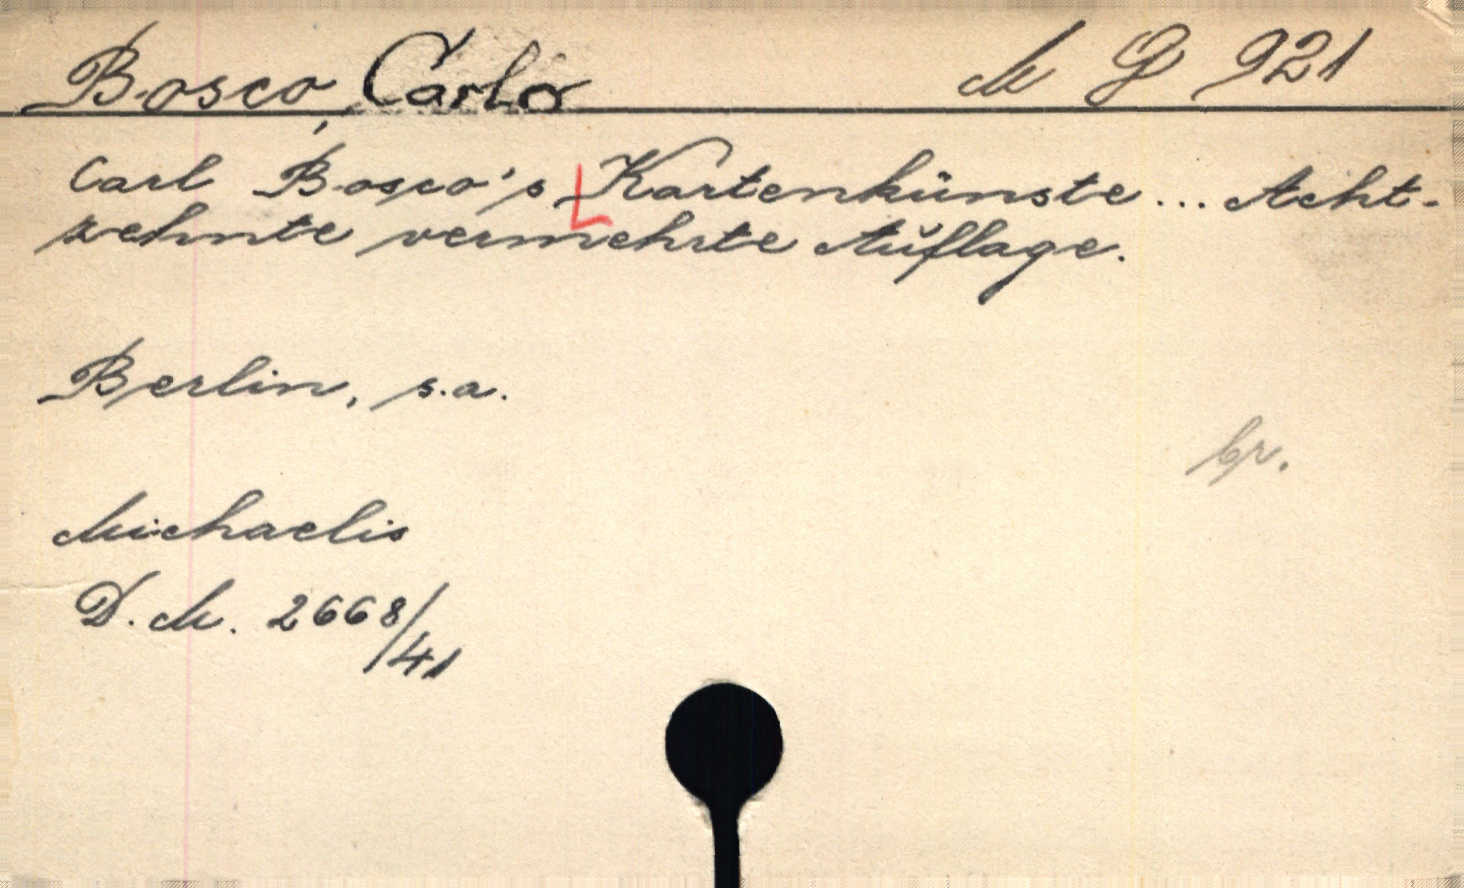 Bosco, Carlo M G 921
Carl Bosco's Kartenkünste... Acht-
zehnte vermehrte Auflage.
Berlin, s.a.
br.
Michaelis
D. M. 2668/41